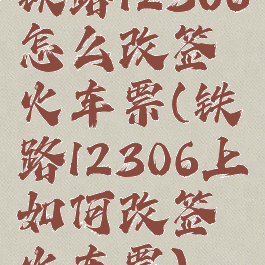 铁路12306
怎么改签
火车票(铁
路12306上
如何改签
火车票)